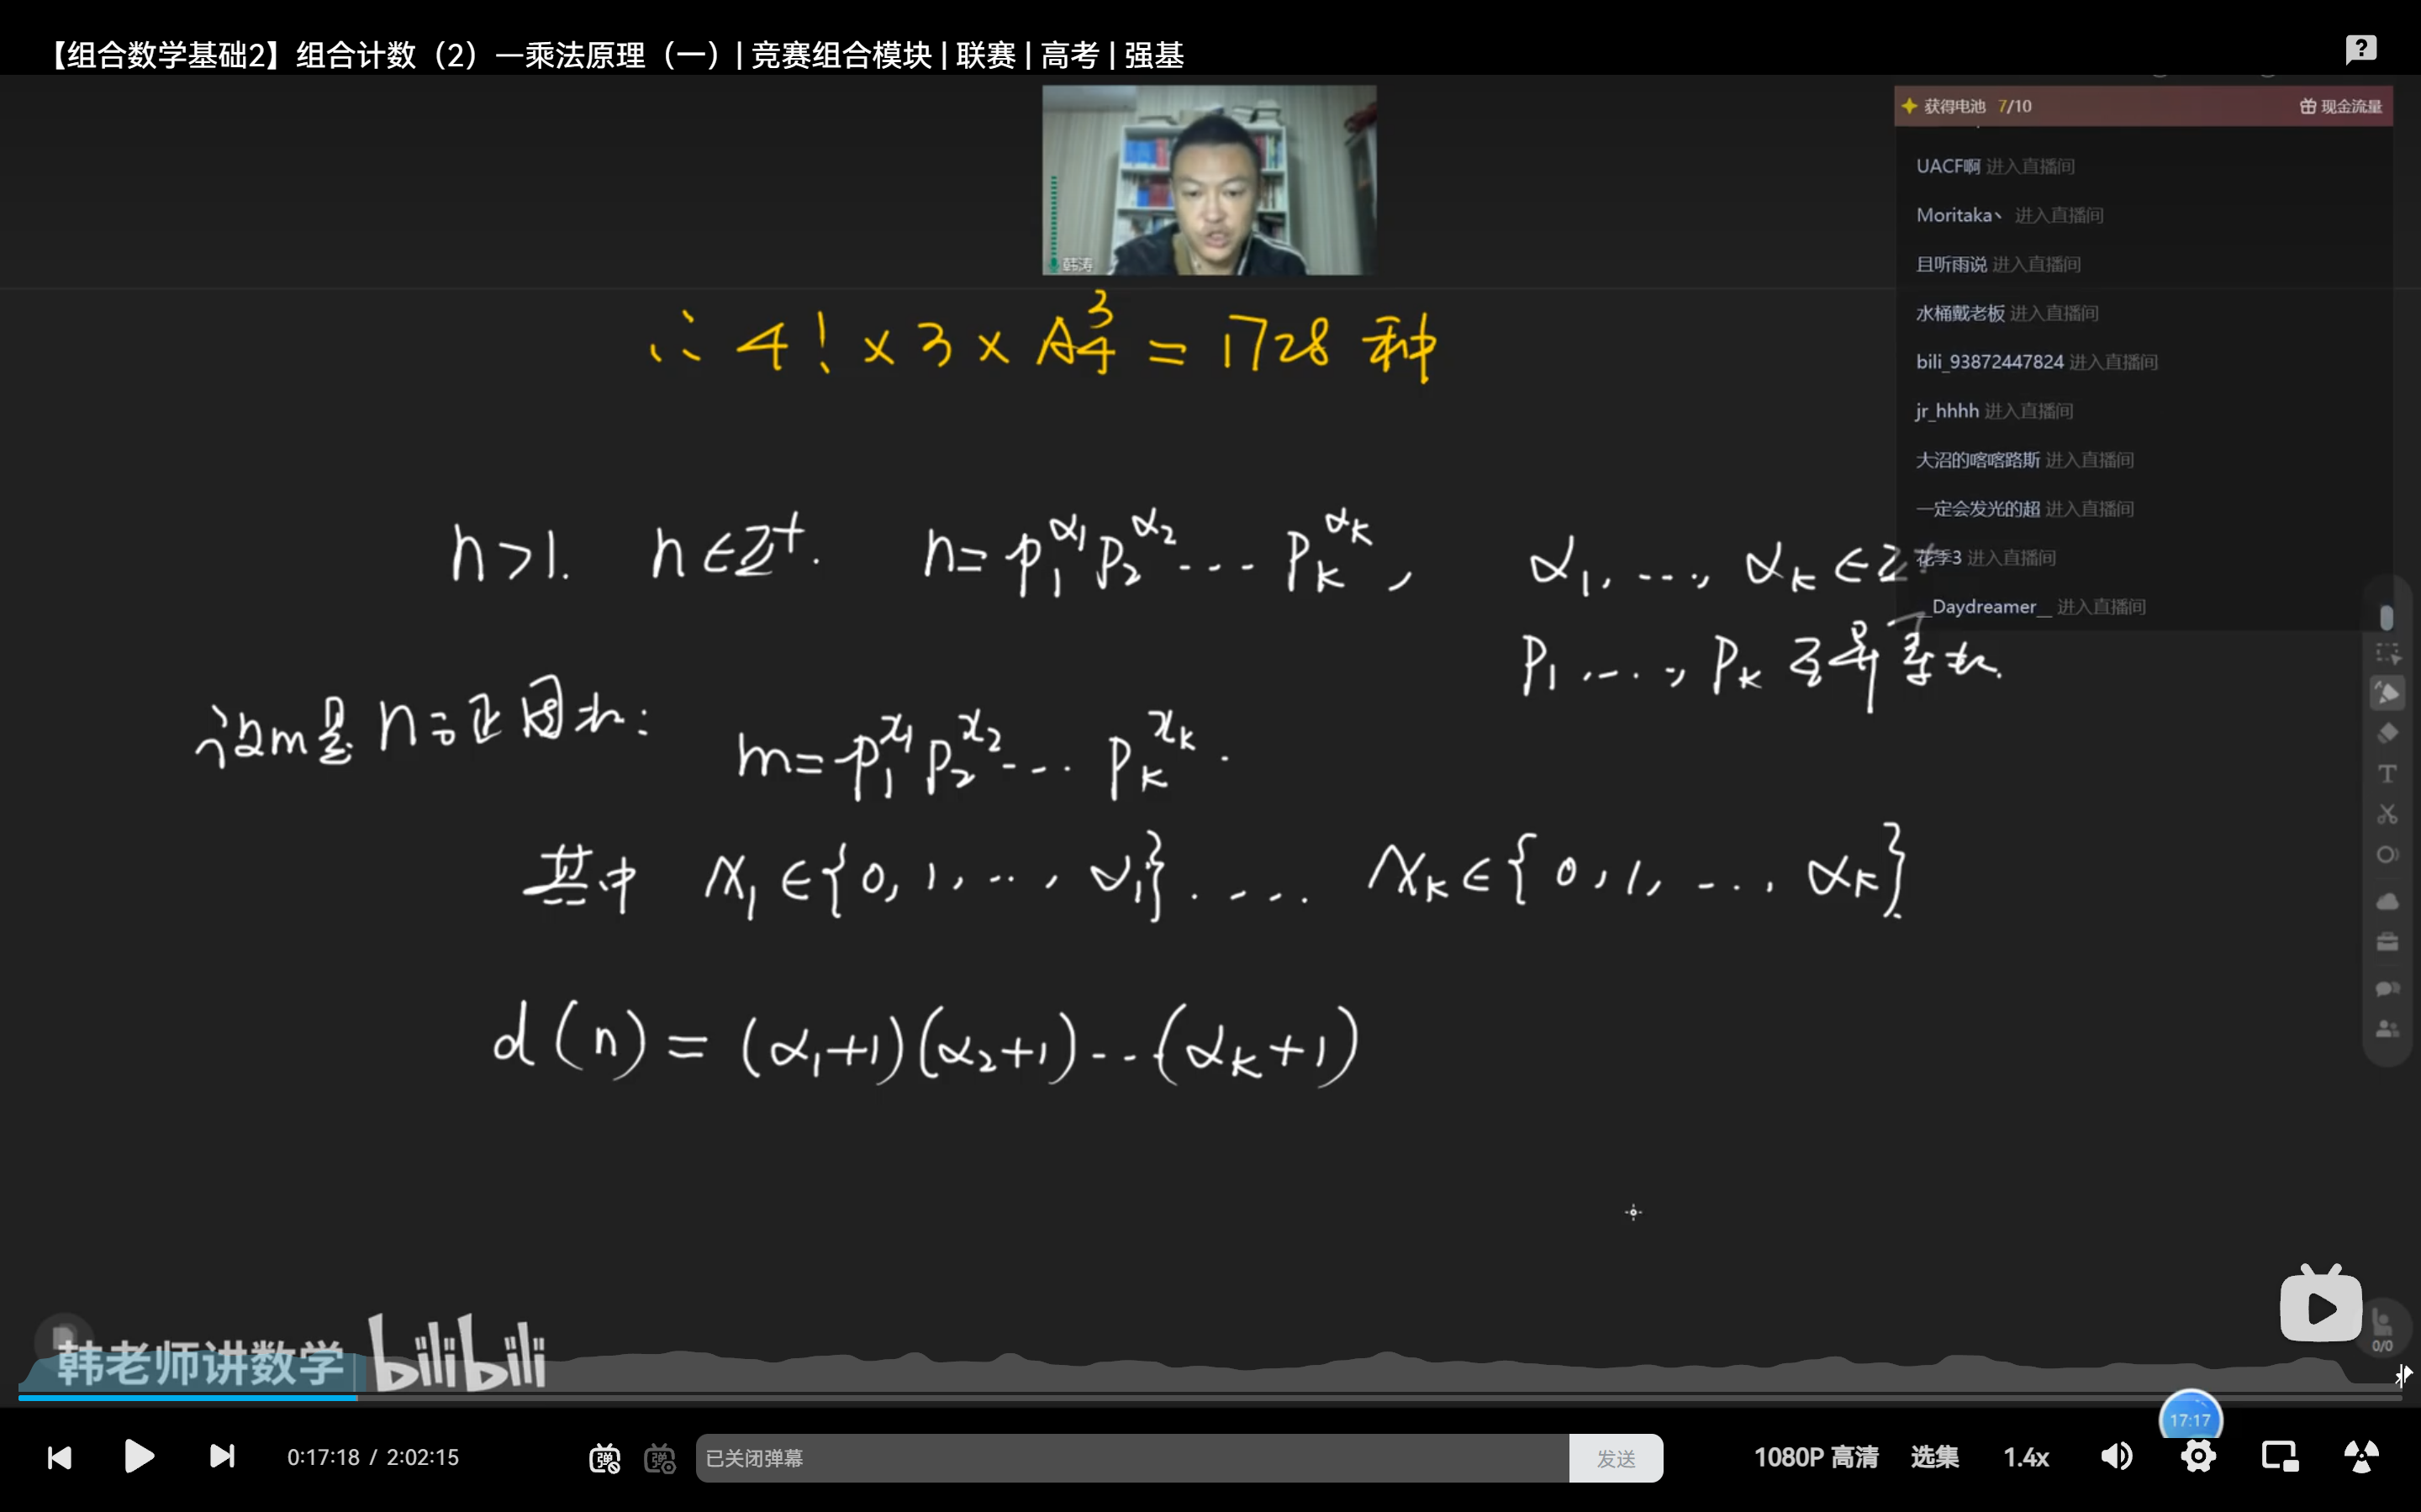 【组合数学基础2】组合计数（2）—乘法原理（一）| 竞赛组合模块 | 联赛 | 高考 | 强基
获得电池 7/10 现金流量
UACF啊 进入直播间
Moritaka丶 进入直播间
且听雨说 进入直播间
水桶戴老板 进入直播间
bili_93872447824 进入直播间
jr_hhhh 进入直播间
大沼的喀喀路斯 进入直播间
一定会发光的超 进入直播间
花季3 进入直播间
__Daydreamer__ 进入直播间
韩涛
∴ 4! × 3 × A₄³ = 1728 种
n>1. n∈Z⁺. n=p₁^α₁ p₂^α₂ … p_k^α_k , α₁, …, α_k ∈Z⁺
p₁ …, p_k 互异素数.
设m是n的正因数: m=p₁^x₁ p₂^x₂ … p_k^x_k .
其中 x₁∈{0, 1, …, α₁}. … x_k∈{0, 1, …, α_k}
d(n) = (α₁+1)(α₂+1)…(α_k+1)
韩老师讲数学 bilibili
0/0
17:17
0:17:18 / 2:02:15 弹 弹 已关闭弹幕 发送 1080P 高清 选集 1.4x